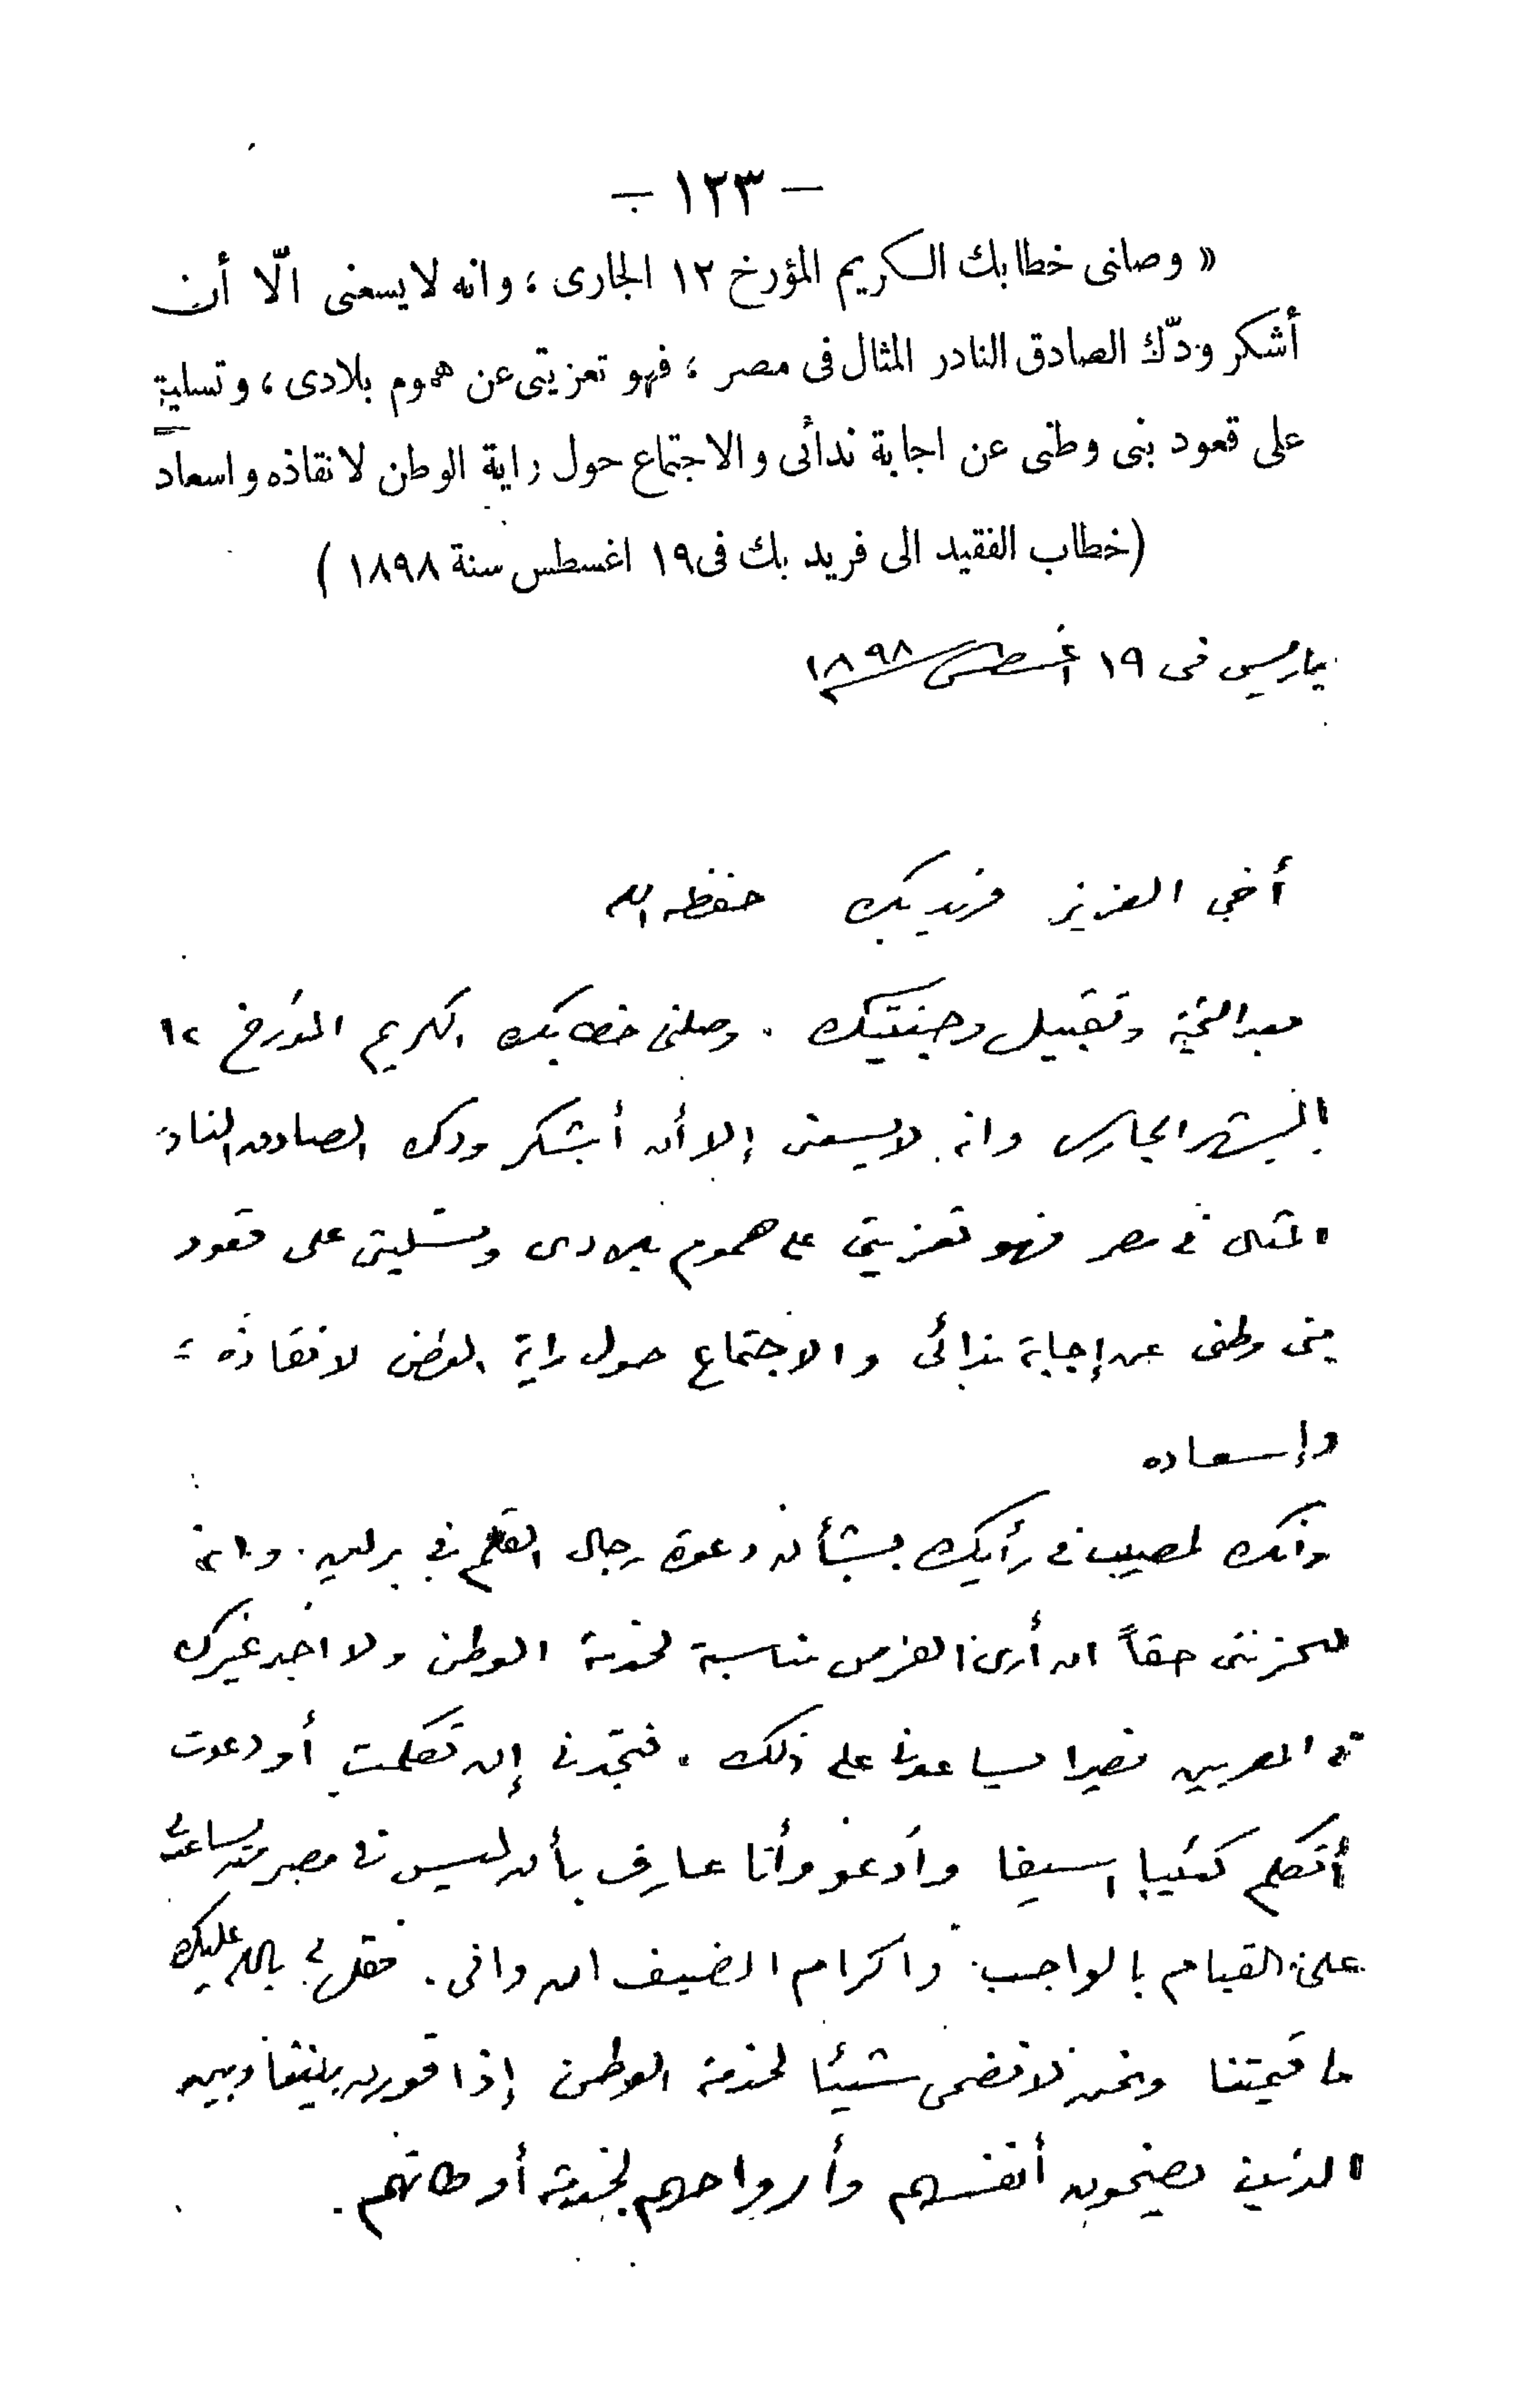 — ١٢٣ —
« وصلنى خطابك الكريم المؤرخ ١٢ الجارى ، وانه لا يسعنى الّا أن
أشكر ودّك الصادق النادر المثال فى مصر ، فهو تعزيتى عن هموم بلادى ، وتسليتى
على قعود بنى وطنى عن اجابة ندائى والاجتماع حول راية الوطن لانقاذه واسعاد
(خطاب الفقيد الى فريد بك فى ١٩ اغسطس سنة ١٨٩٨ )
باريس فى ١٩ أغسطس ١٨٩٨
أخى العزيز فريد بك حفظه الله
بعد التحية وتقبيل وجنتيك . وصلنى خطابك الكريم المؤرخ ١٢
الشهر الجارى وانه لا يسعنى إلا أن أشكر ودك الصادق النادر
المثال فى مصر فهو تعزيتى على هموم بلادى وتسليتى على قعود
بنى وطنى عن إجابة ندائى والاجتماع حول راية الوطن لانقاذه
وإسعاده
وانك لمصيب فى رأيك بشأن دعوة رجال القلم فى برلين . وانه
ليحزننى حقاً ان أرى الفرص مناسبة لخدمة الوطن ولا اجد غيرك
من المصريين نصيرا يساعدنى على ذلك . فتجدنى إن تكلمت أو دعوت
أتكلم كئيبا اسيفا وأدعو وأنا عارف بأن ليس فى مصر من يساعدنى
على القيام بالواجب واكرام الضيف ان وافى . فقل لى بالله عليك
ما قيمتنا ونحن لا نضحى شيئا لخدمة الوطن إذا قورن بيننا وبين
الذين يضحون أنفسهم وأرواحهم لخدمة أوطانهم .